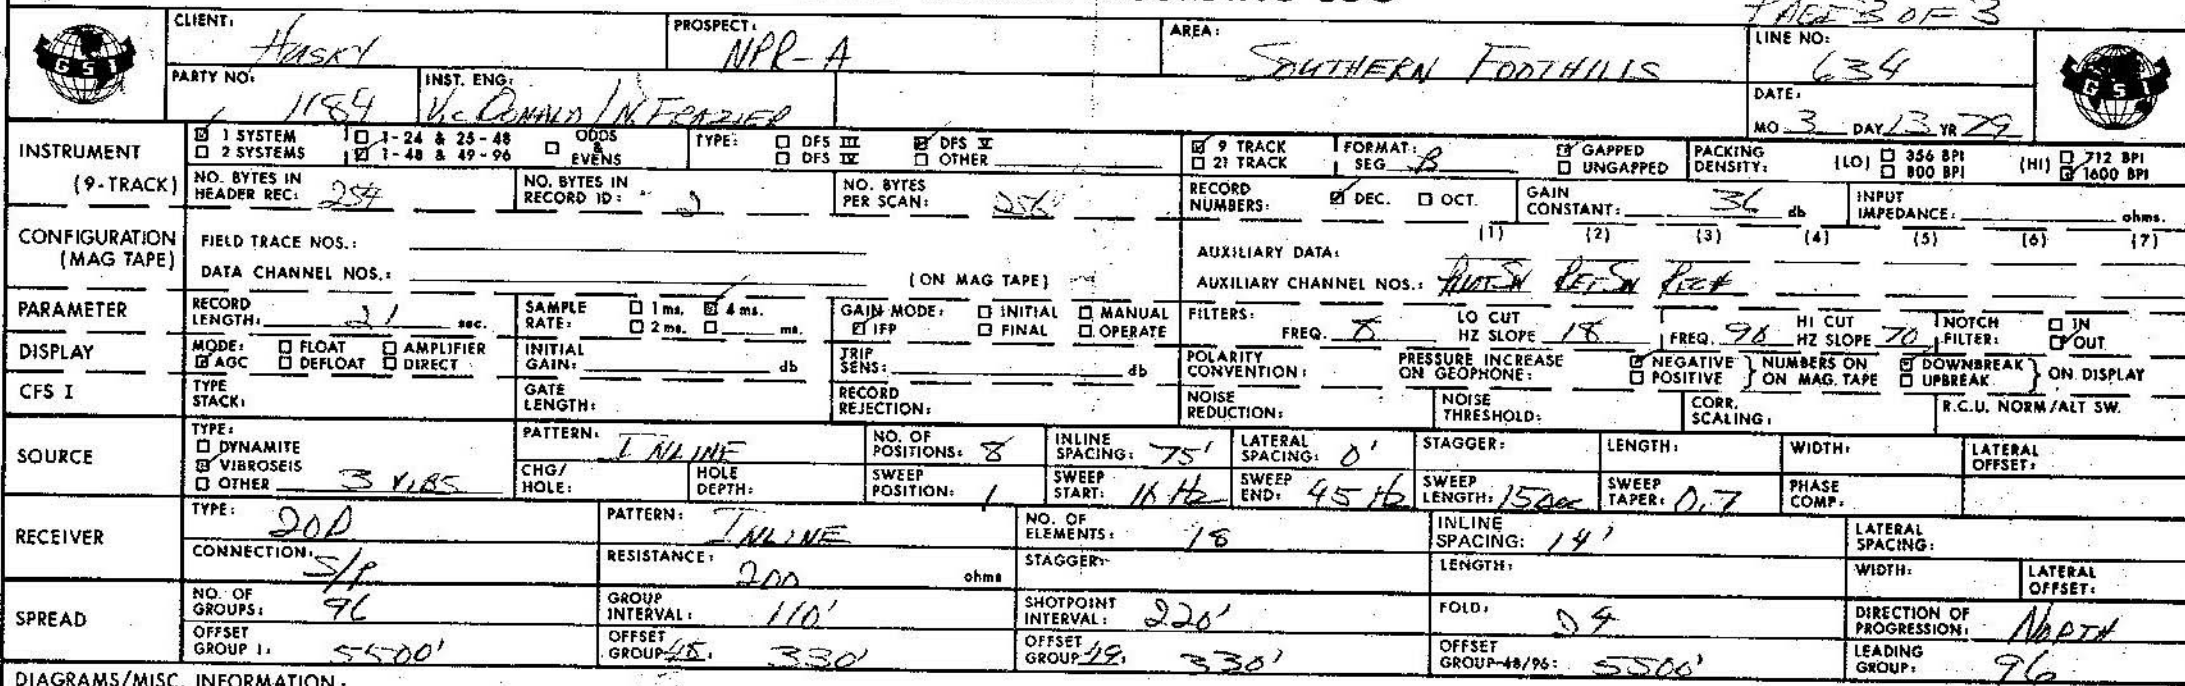 PAGE 3 OF 3
CLIENT: HUSKY PROSPECT: NPR-A AREA: SOUTHERN FOOTHILLS LINE NO: 634
GSI GSI
PARTY NO: 1184 INST. ENG: V. McDONALD / N. FRAZIER DATE: MO 3 DAY 13 YR 79
INSTRUMENT (9-TRACK) 1 SYSTEM 1-24 & 25-48 ODDS & EVENS TYPE: DFS III DFS V 9 TRACK FORMAT: SEG B GAPPED PACKING DENSITY: (LO) 356 BPI (HI) 712 BPI
2 SYSTEMS 1-48 & 49-96 DFS IV OTHER 21 TRACK UNGAPPED 800 BPI 1600 BPI
NO. BYTES IN HEADER REC: NO. BYTES IN RECORD ID: 2 NO. BYTES PER SCAN: RECORD NUMBERS: DEC. OCT. GAIN CONSTANT: 36 db INPUT IMPEDANCE: ohms.
CONFIGURATION (MAG TAPE) FIELD TRACE NOS.: AUXILIARY DATA: (1) (2) (3) (4) (5) (6) (7)
DATA CHANNEL NOS.: (ON MAG TAPE) AUXILIARY CHANNEL NOS.:
PARAMETER RECORD LENGTH: 21 sec. SAMPLE RATE: 1 ms. 4 ms. 2 ms. ms. GAIN MODE: INITIAL MANUAL IFP FINAL OPERATE FILTERS: FREQ. 8 LO CUT HZ SLOPE 18 FREQ. 90 HI CUT HZ SLOPE 70 NOTCH FILTER: IN OUT
DISPLAY MODE: FLOAT AMPLIFIER AGC DEFLOAT DIRECT INITIAL GAIN: db TRIP SENS: db POLARITY CONVENTION: PRESSURE INCREASE ON GEOPHONE: NEGATIVE POSITIVE NUMBERS ON ON MAG. TAPE DOWNBREAK UPBREAK ON DISPLAY
CFS I TYPE STACK: GATE LENGTH: RECORD REJECTION: NOISE REDUCTION: NOISE THRESHOLD: CORR. SCALING: R.C.U. NORM/ALT SW.
SOURCE TYPE: DYNAMITE VIBROSEIS OTHER 3 VIBS PATTERN: INLINE NO. OF POSITIONS: 8 INLINE SPACING: 75' LATERAL SPACING: 0' STAGGER: LENGTH: WIDTH: LATERAL OFFSET:
CHG/HOLE: HOLE DEPTH: SWEEP POSITION: 1 SWEEP START: Hz SWEEP END: 45 Hz SWEEP LENGTH: 15 sec SWEEP TAPER: 0.7 PHASE COMP:
RECEIVER TYPE: 20D PATTERN: INLINE NO. OF ELEMENTS: 18 INLINE SPACING: 14' LATERAL SPACING:
CONNECTION: S/P RESISTANCE: 200 ohms STAGGER: LENGTH: WIDTH: LATERAL OFFSET:
SPREAD NO. OF GROUPS: 96 GROUP INTERVAL: 110' SHOTPOINT INTERVAL: 220' FOLD: 24 DIRECTION OF PROGRESSION: NORTH
OFFSET GROUP 1: 5500' OFFSET GROUP 48: 330' OFFSET GROUP 49: 330' OFFSET GROUP-48/96: 5500' LEADING GROUP: 96
DIAGRAMS/MISC. INFORMATION: